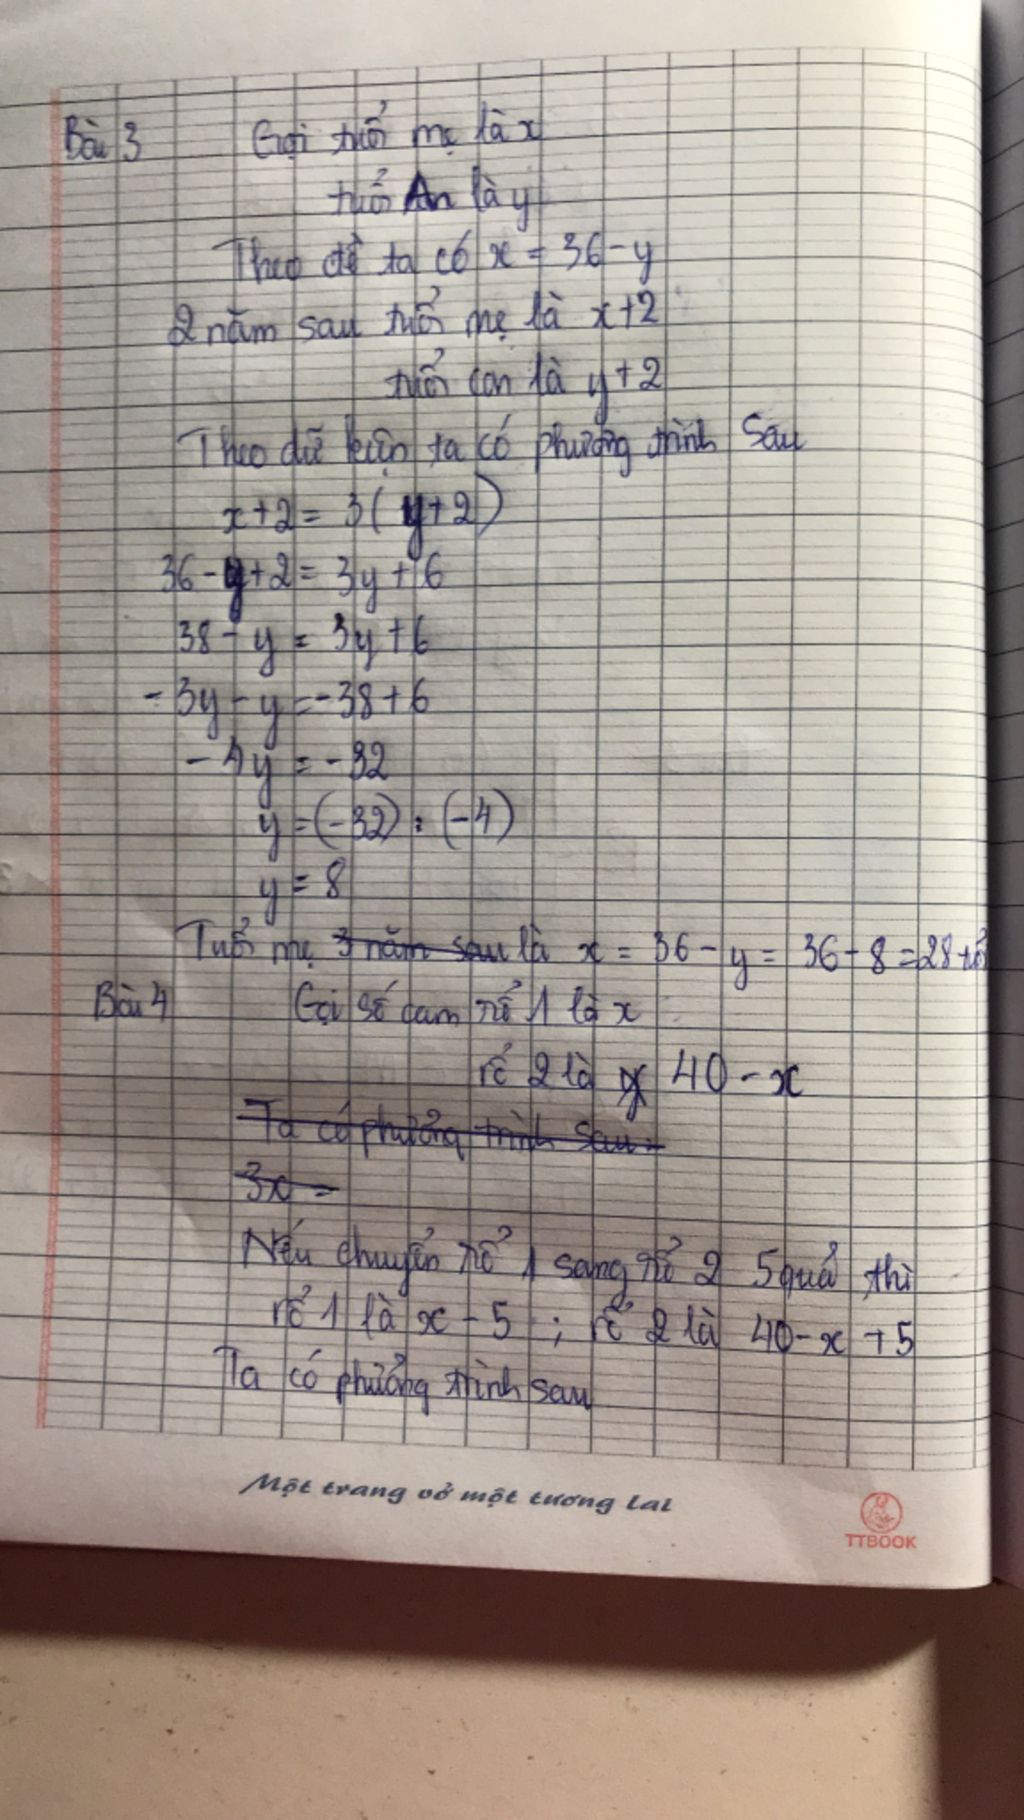 Bài 3 Gọi tuổi mẹ là x
tuổi An là y
Theo đề ta có x = 36 - y
2 năm sau tuổi mẹ là x+2
tuổi con là y+2
Theo dữ kiện ta có phương trình sau
x+2 = 3(y+2)
36 - y+2 = 3y + 6
38 - y = 3y + 6
- 3y - y = -38 + 6
- 4y = -32
y = (-32) : (-4)
y = 8
Tuổi mẹ 3 năm sau là x = 36 - y = 36 - 8 = 28 tuổi
Bài 4 Gọi số cam rổ 1 là x
rổ 2 là y 40 - x
Ta có phương trình sau:
3x =
Nếu chuyển rổ 1 sang rổ 2 5 quả thì
rổ 1 là x - 5 ; rổ 2 là 40 - x + 5
Ta có phương trình sau
Một trang vở một tương lai
TTBOOK